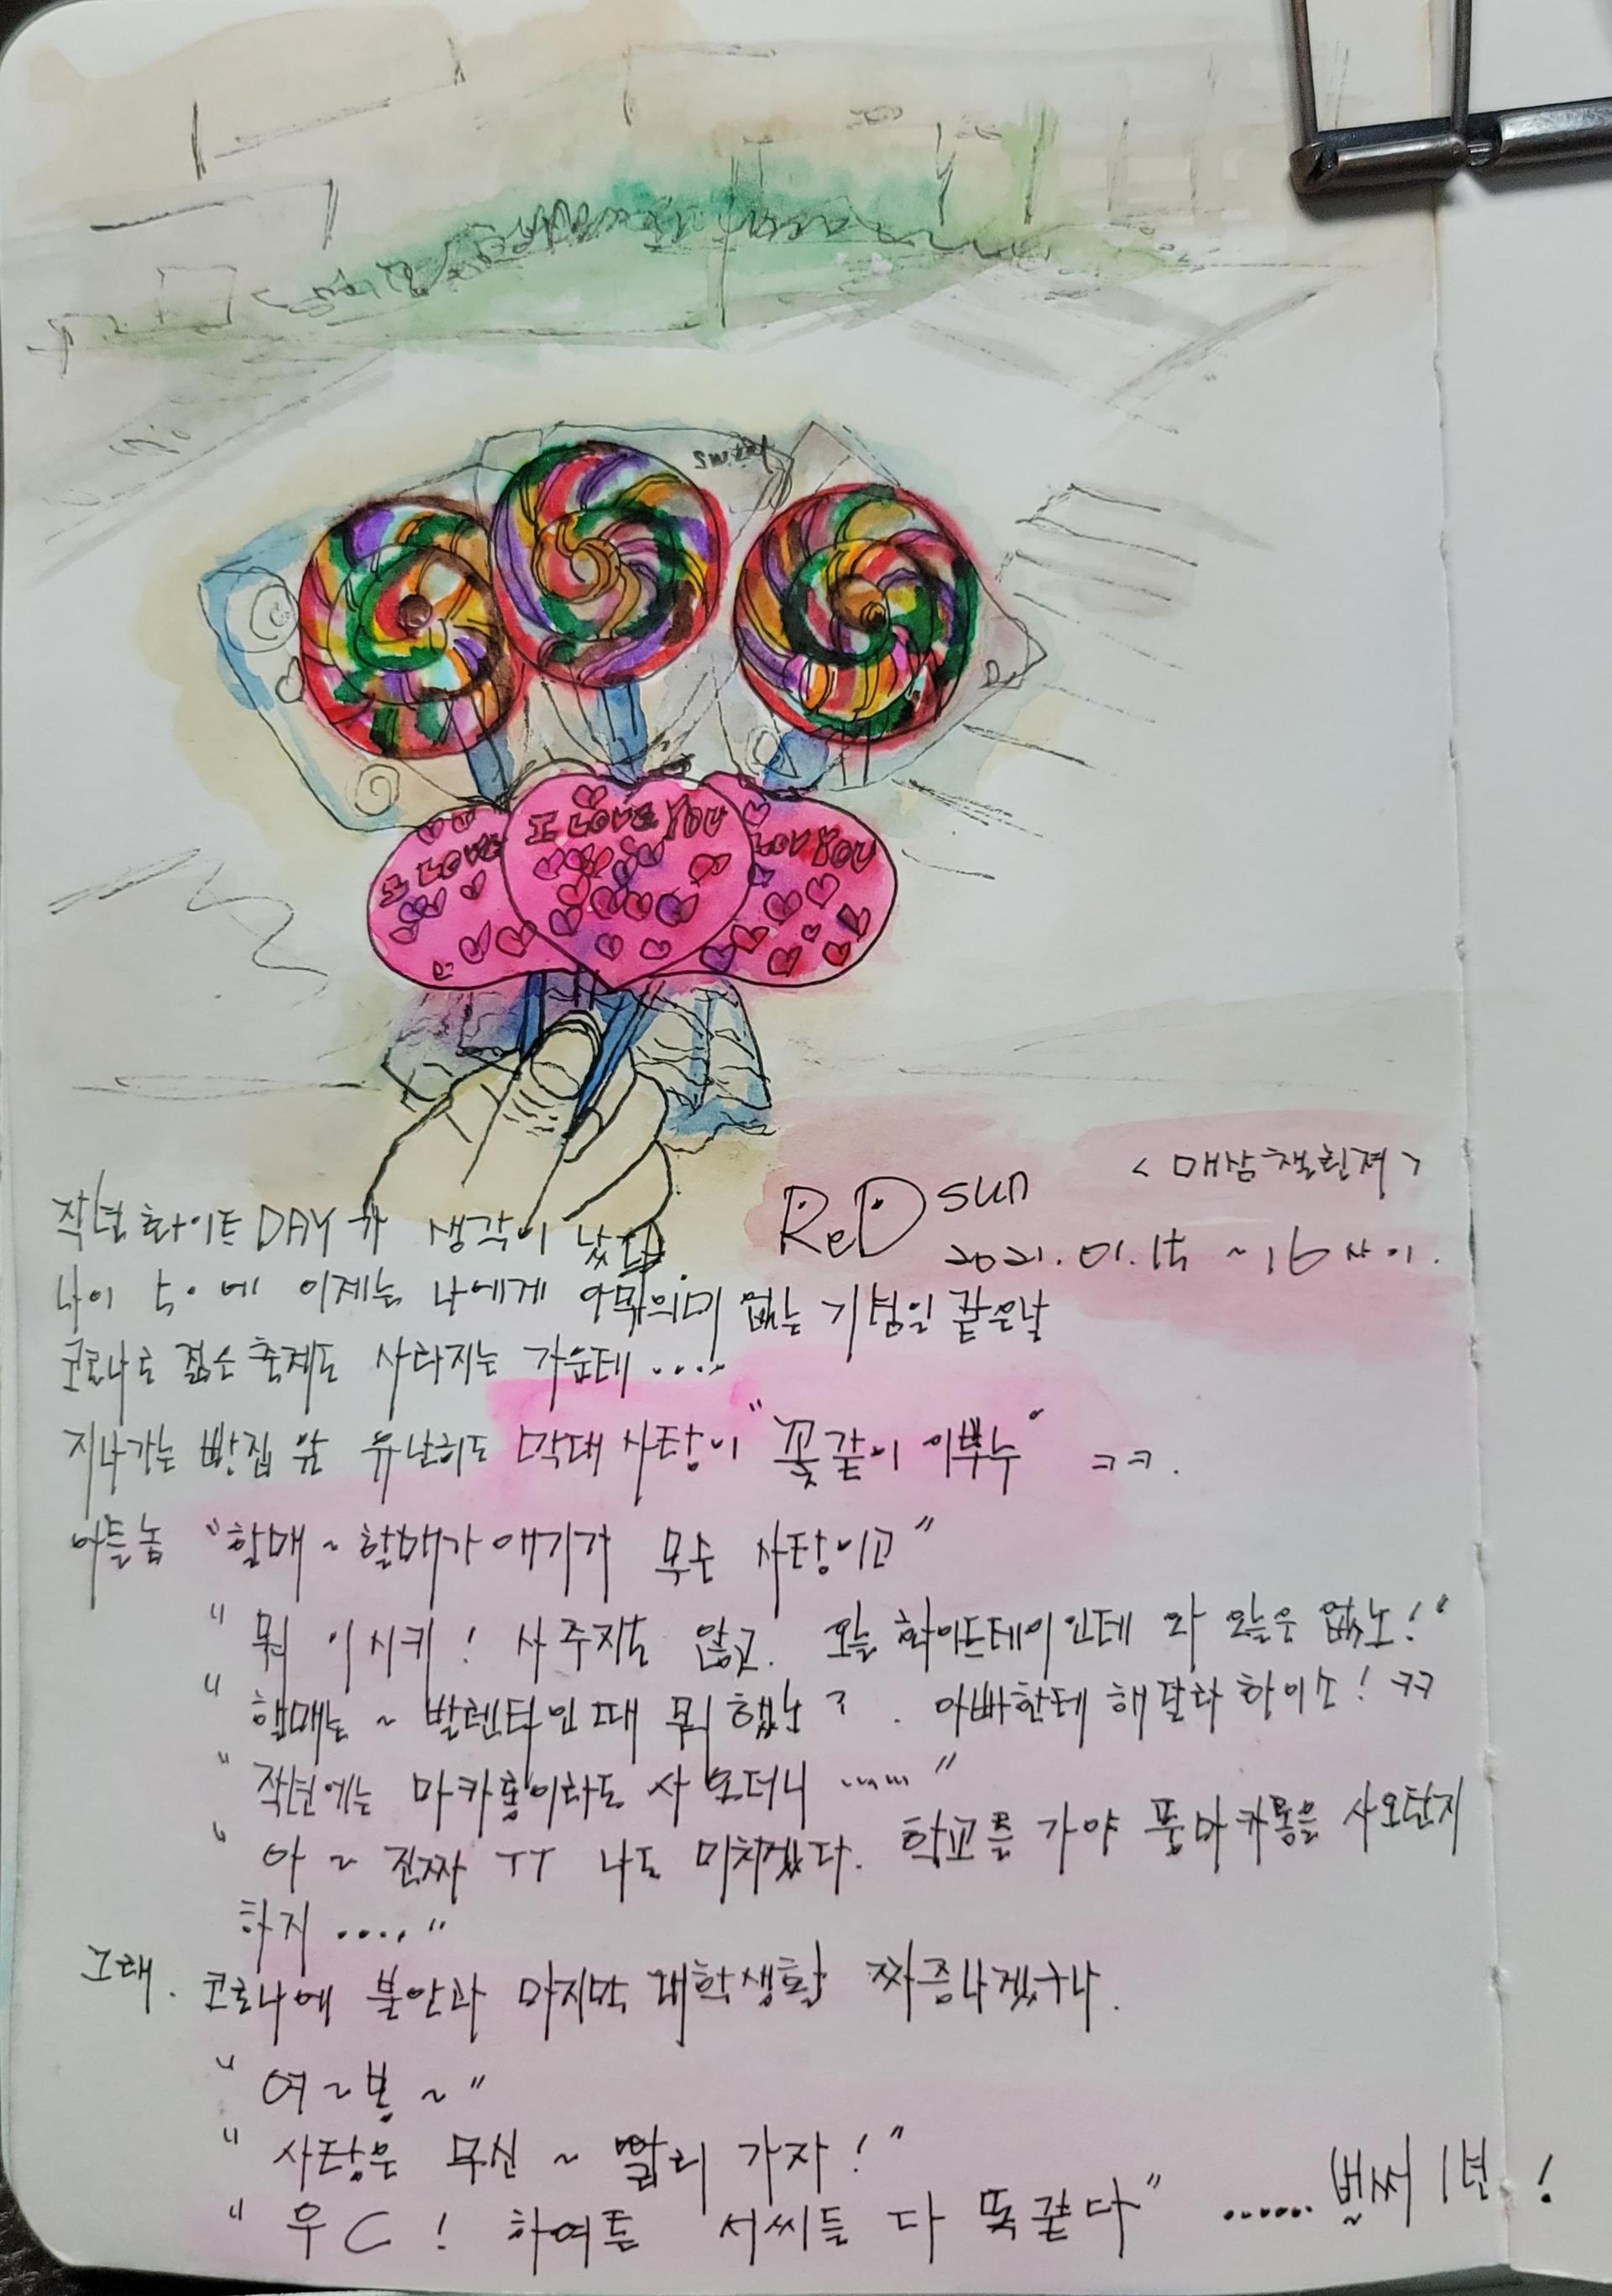 sweet
I LOVE
I LOVE YOU
LOV YOU
<매삼챌린져>
ReD sun
2021.01.15 ~16 사이.
작년 화이트DAY가 생각이 났다.
나이 5.에 이제는 나에게 아무의미 없는 기념일 같은날
코로나로 젊은 축제도 사라지는 가운데 .....
지나가는 빵집 앞 유난히도 막대 사탕이 "꽃같이 이뿌누" ㅋㅋ.
아들놈 "할매~할매가 얘기가 무슨 사탕이고"
" 뭐 이시키! 사주지도 않고. 오늘 화이트데이인데 와 오늘은 없노!"
" 할매는 ~ 발렌타인때 뭐 했노?. 아빠한테 해달라 하이소! ㅋㅋ
" 작년에는 마카롱이라도 사 오더니 ......"
" 아 ~ 진짜 ㅜㅜ 나도 미치겠다. 학교를 가야 뭘마카롱을 사오던지
하지 ....."
그래. 코로나에 불안과 마지막 대학생활 짜증나겠구나.
" 여~봉~"
" 사탕은 무신 ~ 빨리 가자!"
" 우C! 하여튼 서씨들 다 똑같다" ...... 벌써 1년!